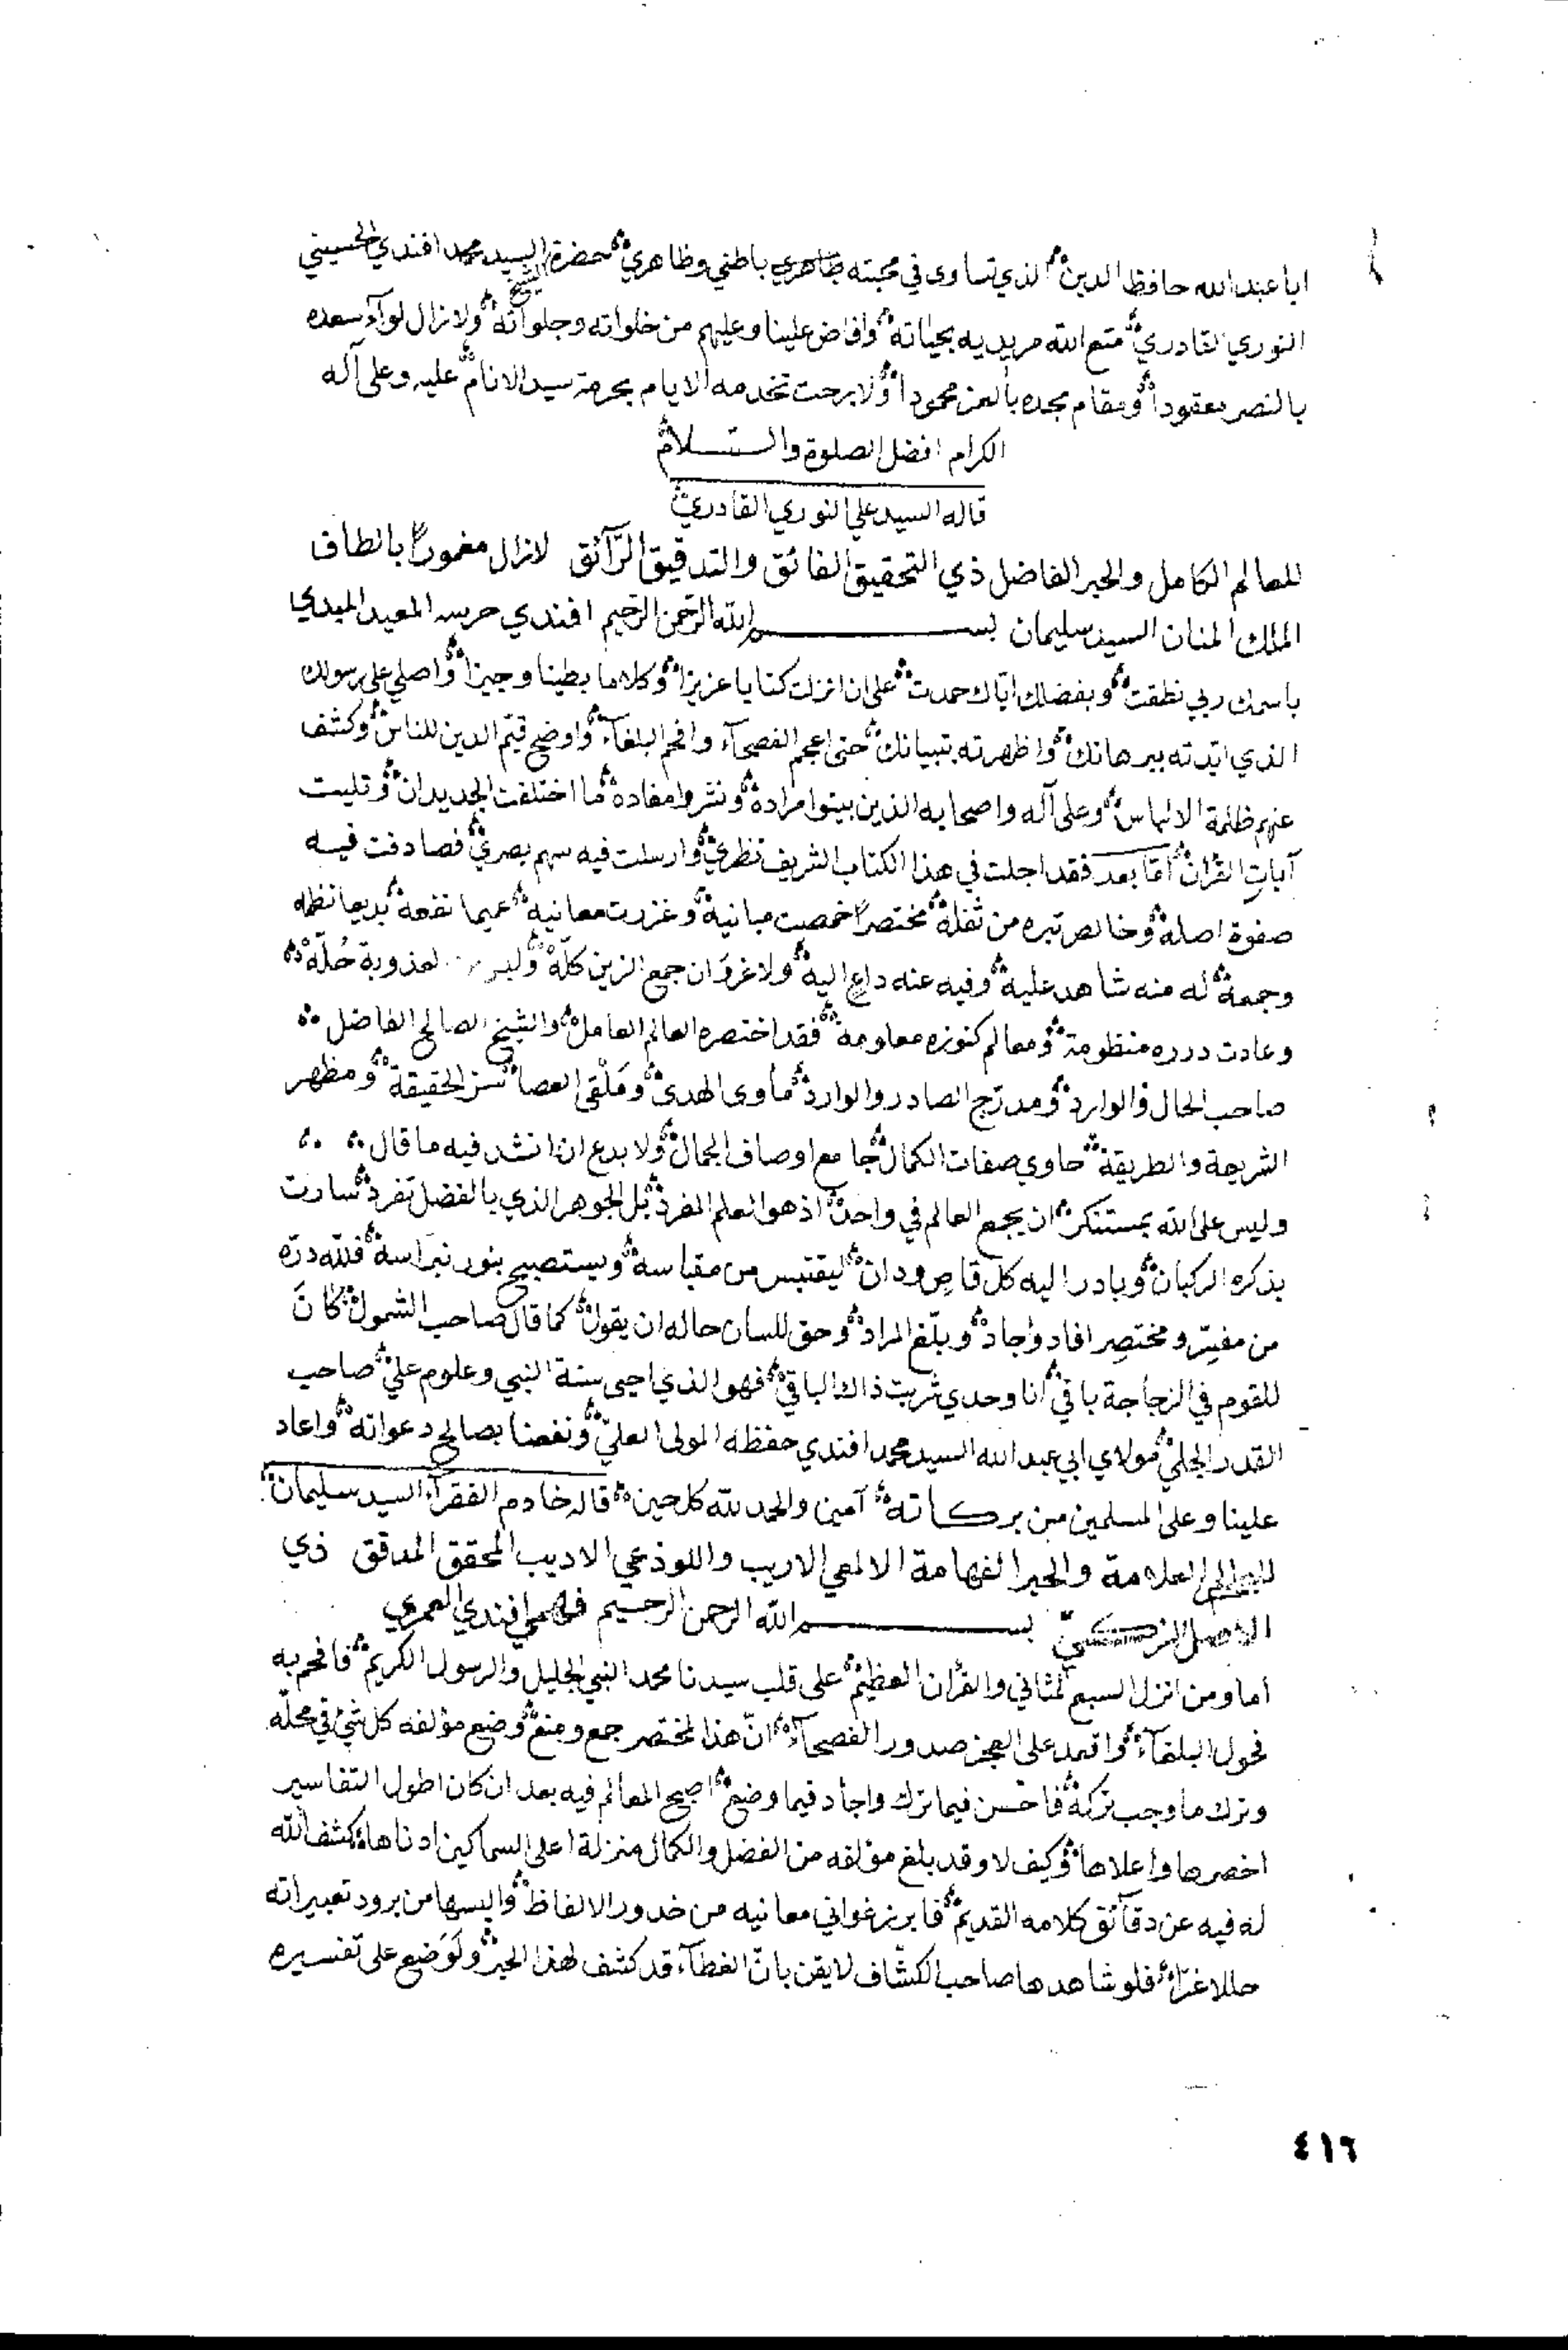 ابا عبد الله حافظ الدين الذي تساوى في محبته ظاهري باطني وظاهري حضرة الشيخ السيد محمد افندي الحسيني
النوري القادري متع الله مريديه بحياته وافاض علينا وعليهم من خلواته وجلواته ولا زال لوآء سعده
بالنصر معقودا ومقام مجده بالعز محمودا ولا برحت تخدمه الايام بحرمة سيد الانام عليه وعلى آله
الكرام افضل الصلوة والسلام
قاله السيد علي النوري القادري
للعالم الكامل والحبر الفاضل ذي التحقيق الفائق والتدقيق الرآئق لازال مغمورا بالطاف
الملك المنان السيد سليمان بسم الله الرحمن الرحيم افندي حرسه المعيد المبدي
باسمك ربي نطقت وبفضلك اياك حمدت على ان انزلت كتابا عزيزا وكلاما بطينا وجيزا واصلي على رسولك
الذي ايدته ببرهانك واظهرته بتبيانك حتى اعجم الفصحآء وافحم البلغآء واوضح قيم الدين للناس وكشف
عنهم ظلمة الالباس وعلى آله واصحابه الذين بينوا مراده ونشروا مفاده ما اختلفت الجديدان وتليت
آيات القرآن امّا بعد فقد اجلت في هذا الكتاب الشريف نظري وارسلت فيه سهم بصري فصادفت فيه
صفوة اصله وخالص تبره من ثفله مختصرا خمصت مبانيه وغزرت معانيه عميما نفعه بديعا نظمه
وجمعه له منه شاهد عليه وفيه عنه داع اليه ولا غروَ ان جمع الزين كلّه لعذوبة حُلّه
وعادت درره منظومة ومعالم كنوزه معلومة فقد اختصره العالم العامل والشيخ الصالح الفاضل
صاحب الحال والوارد ومدرّج الصادر والوارد مأوى الهدى ومَلْقى العصا سرّ الحقيقة ومظهر
الشريعة والطريقة حاوي صفات الكمال جامع اوصاف الجمال ولا بدع ان انشد فيه ما قال
وليس على الله بمستنكر ان يجمع العالم في واحد اذ هو العلم المفرد بل الجوهر الذي بالفضل تفرد سارت
بذكره الركبان وبادر اليه كل قاصٍ ودان ليقتبس من مقباسه ويستصبح بنور نبراسه فلله درّه
من مفسّر ومختصِر افاد واجاد وبلّغ المراد وحق للسان حاله ان يقول كما قال صاحب الشمول كانَ
للقوم في الزجاجة باقي انا وحدي شربت ذاك الباقي فهو الذي احيى سنة النبي وعلوم علي صاحب
القدر الجلي مولاي ابي عبد الله السيد محمد افندي حفظه المولى العليّ ونفعنا بصالح دعواته واعاد
علينا وعلى المسلمين من بركاته آمين والحمد لله كل حين قاله خادم الفقرآء السيد سليمان
للعالم العلامة والحبر الفهامة الالمعي الاريب واللوذعي الاديب المحقق المدقق ذي
الاصل الزكيّ بسم الله الرحمن الرحيم فهمي افندي العمري
اما ومن انزل السبع المثاني والقرآن العظيم على قلب سيدنا محمد النبي الجليل والرسول الكريم فافحم به
فحول البلغآء واقعد على العجز صدور الفصحآء انّ هذا المختصر جمع ومنع وضع مؤلفه كل شيء في محله
وترك ما وجب تركه فاحسن فيما ترك واجاد فيما وضع اصبح المعالم فيه بعد ان كان اطول التفاسير
اخصرها واعلاها وكيف لا وقد بلغ مؤلفه من الفضل والكمال منزلة اعلى السماكين ادناها كشف الله
له فيه عن دقآئق كلامه القديم فابرز غواني معانيه من خدور الالفاظ والبسها من برود تعبيراته
حللا غرّاء فلو شاهدها صاحب الكشّاف لايقن بانّ الغطآء قد كشف لهذا الحبر ولَوَضع على تفسيره
٤١٦